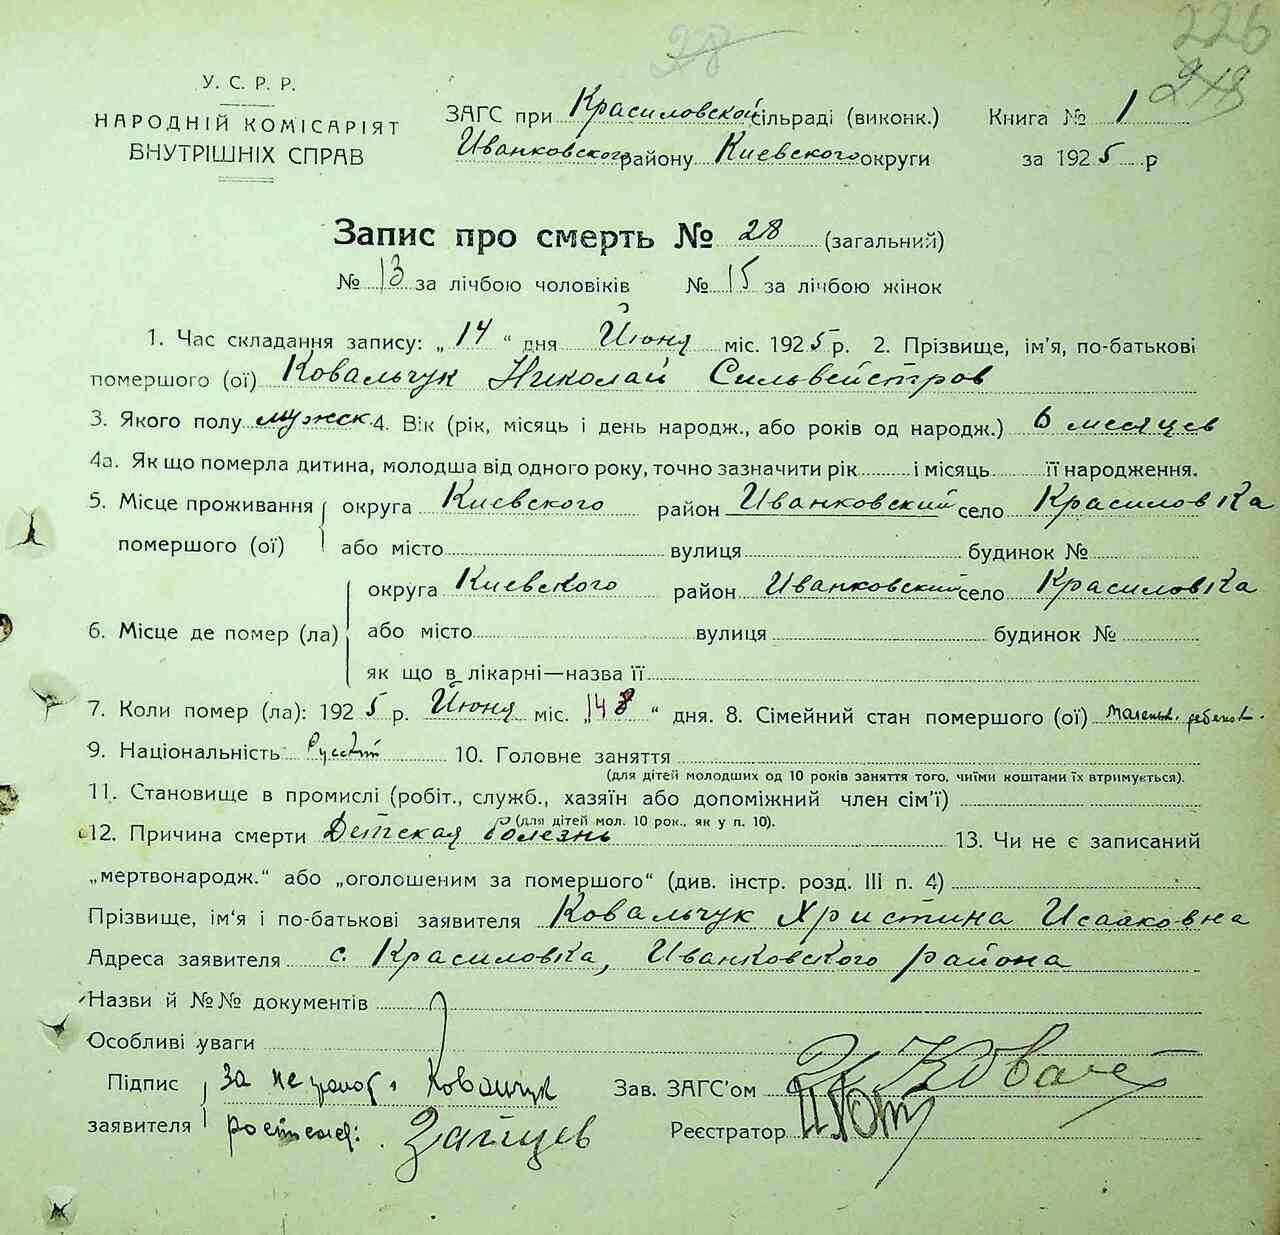 28
226
218
У. С. Р. Р.
НАРОДНІЙ КОМІСАРІЯТ
ВНУТРІШНІХ СПРАВ
ЗАГС при Красиловской сільраді (виконк.)
Иванковского району Киевского округи
Книга № 1
за 1925 р
Запис про смерть № 28 (загальний)
№ 13 за лічбою чоловіків № 15 за лічбою жінок
1. Час складання запису: „ 14 “ дня Июня міс. 1925 р. 2. Прізвище, ім’я, по-батькові
помершого (ої) Ковальчук Николай Сильвейстров
3. Якого полу мужск 4. Вік (рік, місяць і день народж., або років од народж.) 6 месяцев
4а. Як що померла дитина, молодша від одного року, точно зазначити рік і місяць її народження.
5. Місце проживання помершого (ої) округа Киевского район Иванковский село Красиловка
або місто вулиця будинок №
6. Місце де помер (ла) округа Киевского район Иванковский село Красиловка
або місто вулиця будинок №
як що в лікарні—назва її
7. Коли помер (ла): 1925 р. Июня міс. „14 “ дня. 8. Сімейний стан помершого (ої) маленьк. ребенок.
9. Національність Русский 10. Головне заняття
(для дітей молодших од 10 років заняття того, чиїми коштами їх втримується).
11. Становище в промислі (робіт., служб., хазяїн або допоміжний член сім’ї)
(для дітей мол. 10 рок., як у п. 10).
12. Причина смерти Детская болезнь 13. Чи не є записаний
„мертвонародж.“ або „оголошеним за помершого“ (див. інстр. розд. III п. 4)
Прізвище, ім‘я і по-батькові заявителя Ковальчук Христина Исааковна
Адреса заявителя с. Красиловка, Иванковского района
Назви й №№ документів
Особливі уваги
Підпис заявителя за неграмот. Ковальчук
Зав. ЗАГС’ом Ковал
Зайцев
Реєстратор